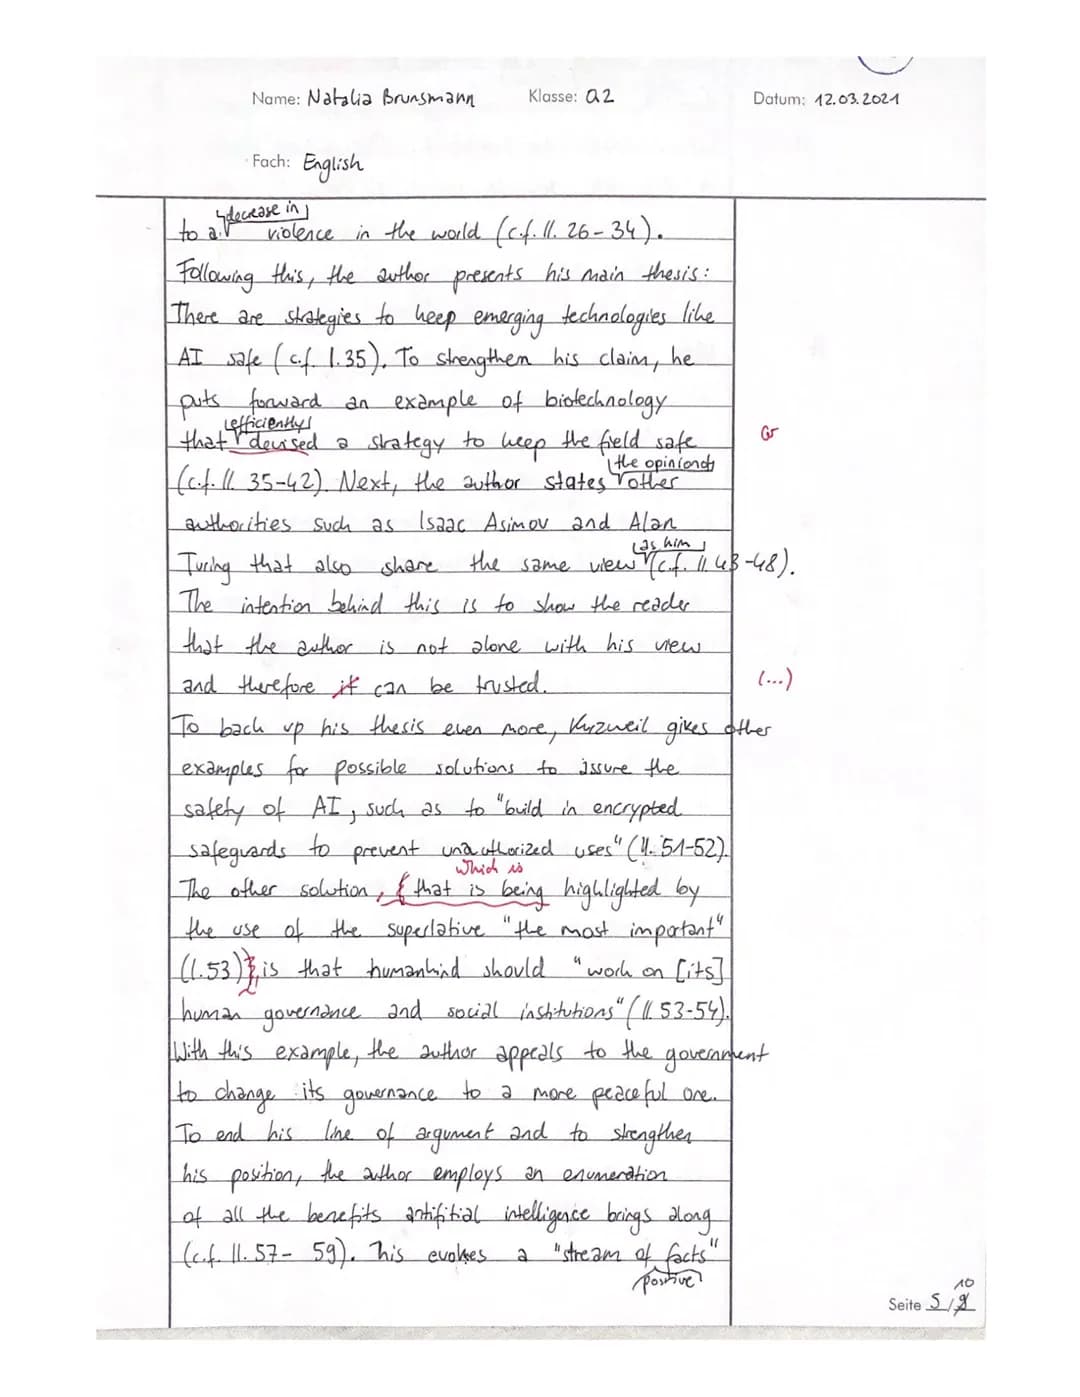 Name: Natalia Brunsmann Klasse: Q2 Datum: 12.03.2021
Fach: English
decrease in
to a violence in the world (c.f. ll. 26-34).
Following this, the author presents his main thesis:
There are strategies to keep emerging technologies like
AI safe (c.f. l.35). To strengthem his claim, he
puts forward an example of biotechnology
efficiently
that devised a strategy to keep the field safe Gr
the opinion of
(c.f. ll. 35-42). Next, the author states other
authorities such as Isaac Asimov and Alan
as him
Turing that also share the same view (c.f. ll. 43-48).
The intention behind this is to show the reader
that the author is not alone with his view
and therefore it can be trusted. (...)
To back up his thesis even more, Kurzweil gives other
examples for possible solutions to assure the
safety of AI, such as to "build in encrypted
safeguards to prevent unauthorized uses" (ll. 51-52).
which is
The other solution, that is being highlighted by
the use of the superlative "the most important"
(l.53), is that humankind should "work on [its]
human governance and social institutions" (ll. 53-54).
With this example, the author appeals to the government
to change its governance to a more peaceful one.
To end his line of argument and to strengthen
his position, the author employs an enumeration
of all the benefits artifitial intelligence brings along
(c.f. ll. 57- 59). This evokes a "stream of facts"
positive
10
Seite 5/9